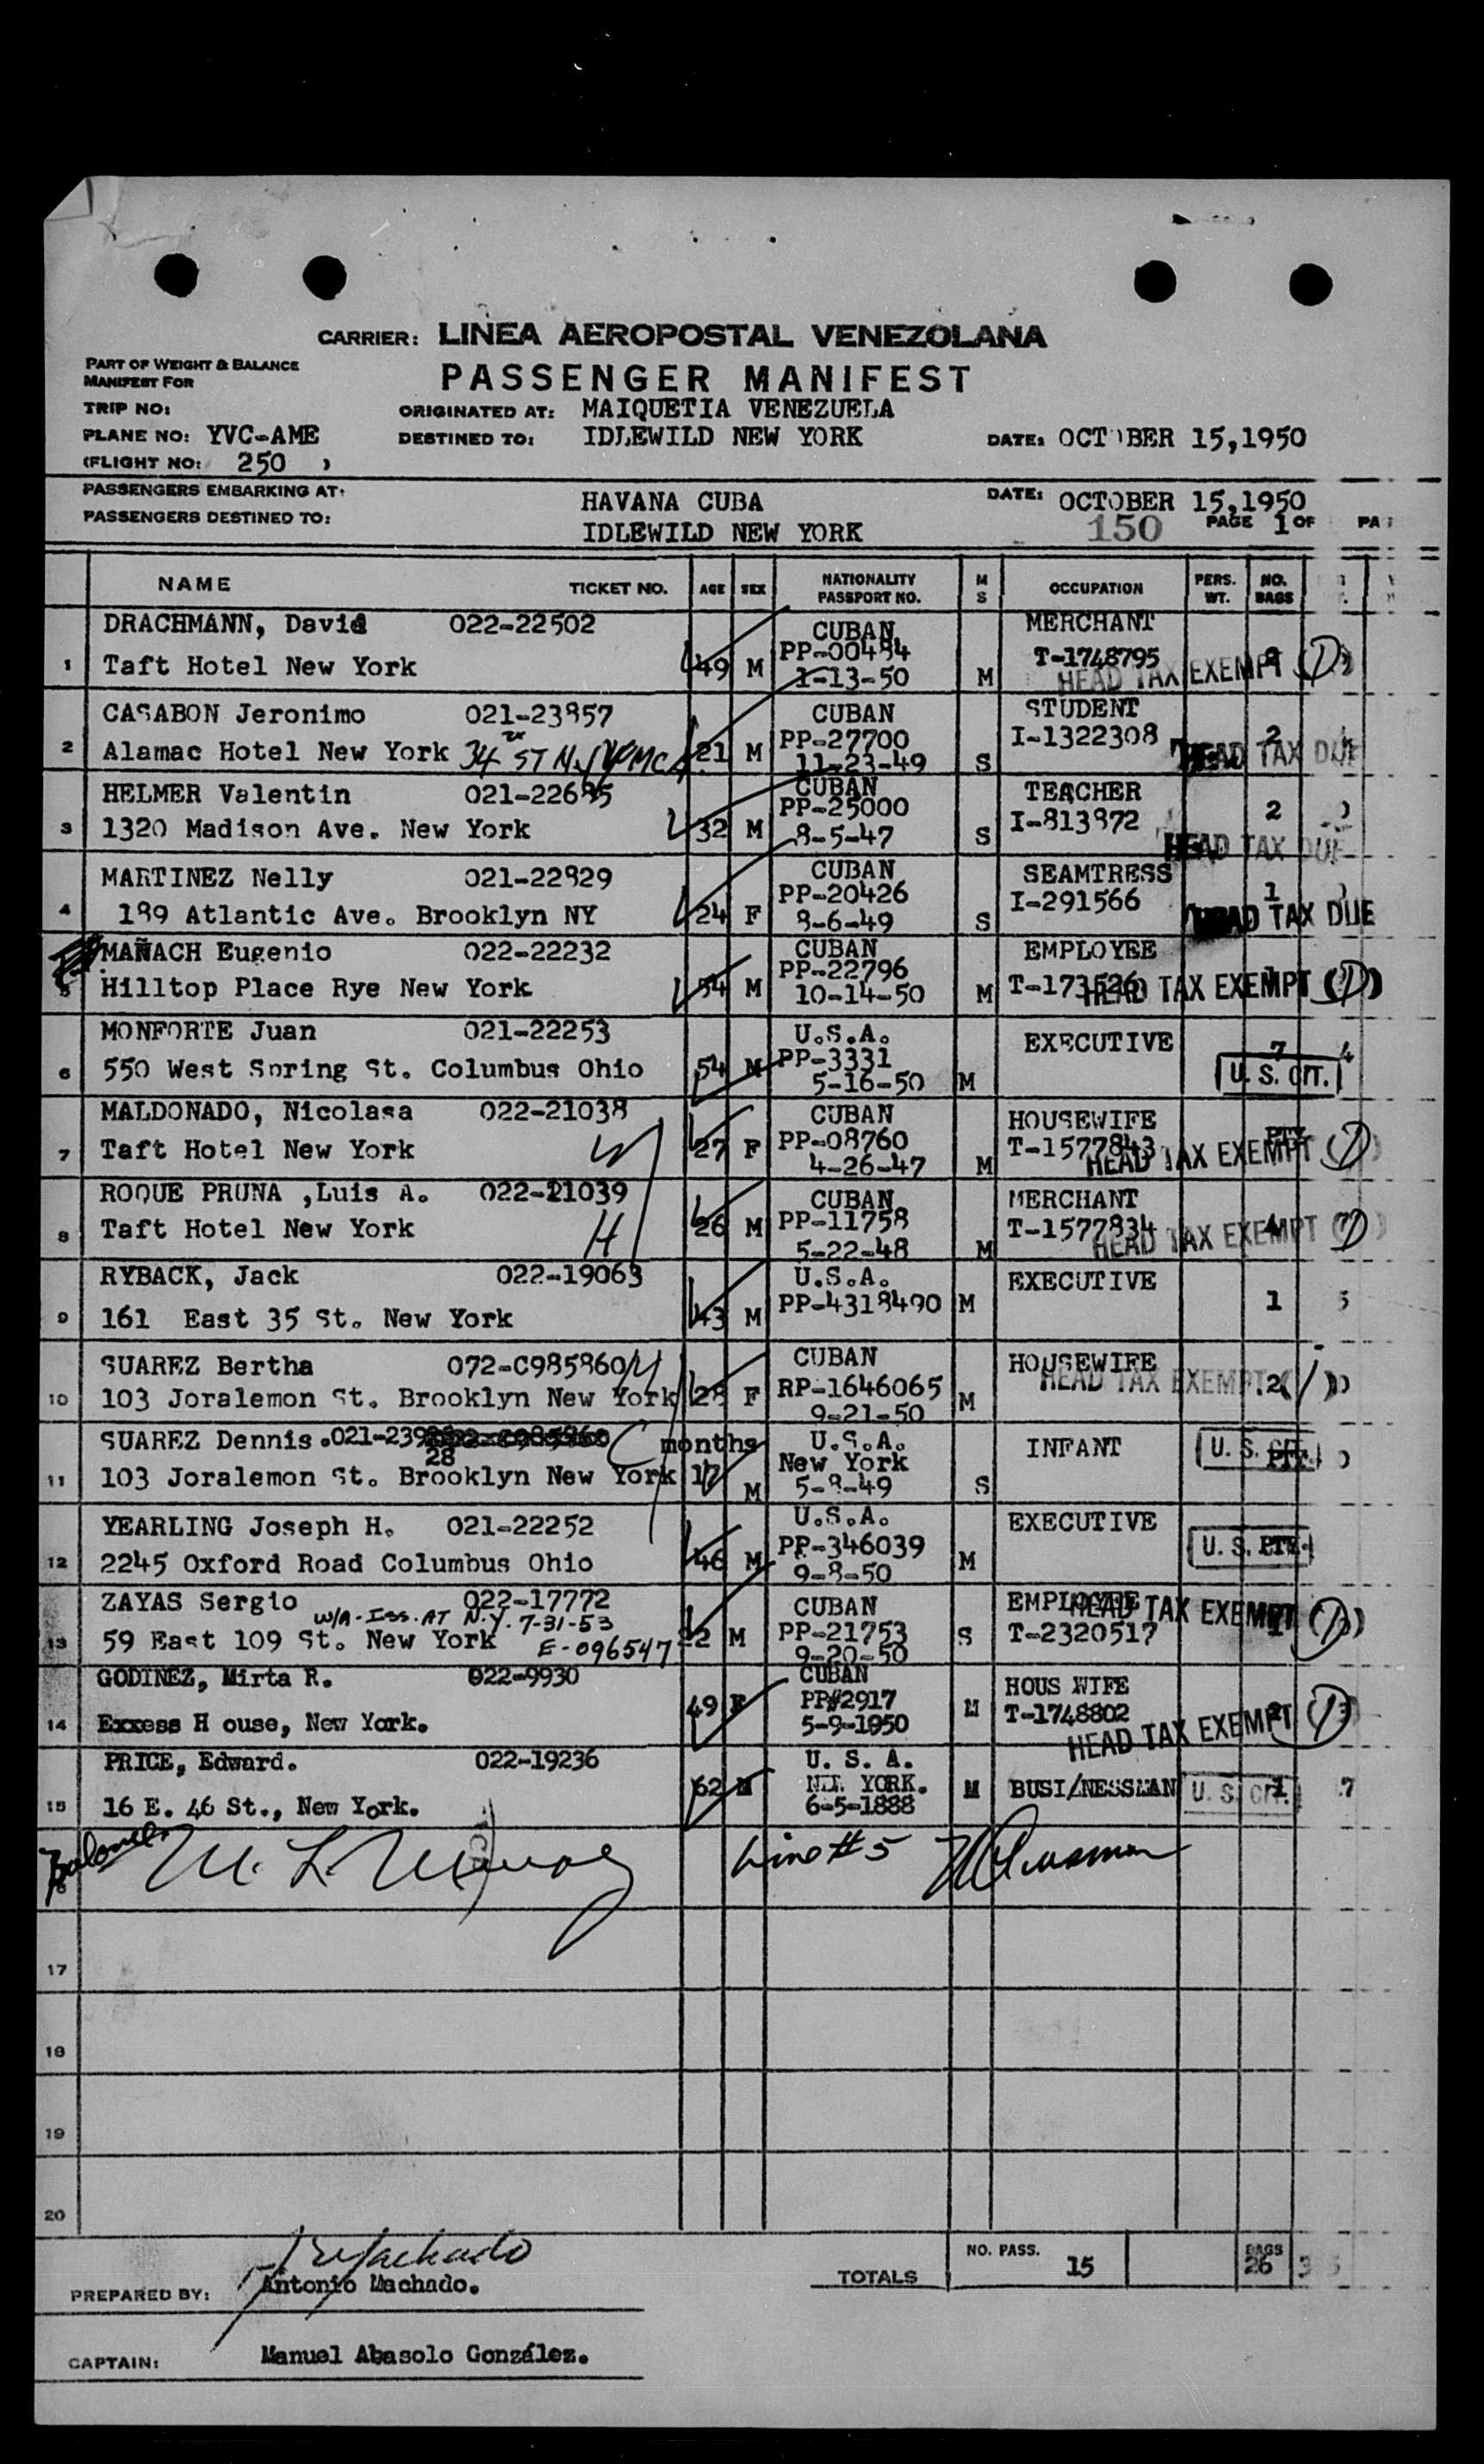 CARRIER: LINEA AEROPOSTAL VENEZOLANA
PART OF WEIGHT & BALANCE
MANIFEST FOR
PASSENGER MANIFEST
TRIP NO: ORIGINATED AT: MAIQUETIA VENEZUELA
PLANE NO: YVC-AME DESTINED TO: IDLEWILD NEW YORK DATE: OCTOBER 15,1950
(FLIGHT NO: 250 )
PASSENGERS EMBARKING AT: HAVANA CUBA DATE: OCTOBER 15,1950
PASSENGERS DESTINED TO: IDLEWILD NEW YORK 150 PAGE 1 OF
NAME TICKET NO. AGE SEX NATIONALITY PASSPORT NO. M S OCCUPATION PERS. WT. NO. BAGS
DRACHMANN, David 022-22502 CUBAN MERCHANT
1 Taft Hotel New York 49 M PP-00484 T-1748795
1-13-50 M HEAD TAX EXEMPT (1)
CASABON Jeronimo 021-23857 CUBAN STUDENT
2 Alamac Hotel New York 34 ST N.Y YMCA 21 M PP-27700 I-1322308 2
11-23-49 S HEAD TAX DUE
HELMER Valentin 021-22685 CUBAN TEACHER
3 1320 Madison Ave. New York 32 M PP-25000 I-813872 2
8-5-47 S HEAD TAX DUE
MARTINEZ Nelly 021-22829 CUBAN SEAMTRESS
4 189 Atlantic Ave. Brooklyn NY 24 F PP-20426 I-291566 1
8-6-49 S HEAD TAX DUE
MAÑACH Eugenio 022-22232 CUBAN EMPLOYEE
5 Hilltop Place Rye New York 54 M PP-22796 T-173526
10-14-50 M HEAD TAX EXEMPT (1)
MONFORTE Juan 021-22253 U.S.A. EXECUTIVE
6 550 West Spring St. Columbus Ohio 54 M PP-3331 7 4
5-16-50 M U. S. CIT.
MALDONADO, Nicolasa 022-21038 CUBAN HOUSEWIFE
7 Taft Hotel New York W 27 F PP-08760 T-1577843 PTY
4-26-47 M HEAD TAX EXEMPT (1)
ROQUE PRUNA ,Luis A. 022-21039 CUBAN MERCHANT
8 Taft Hotel New York H 26 M PP-11758 T-1577834 4
5-22-48 M HEAD TAX EXEMPT (1)
RYBACK, Jack 022-19063 U.S.A. EXECUTIVE
9 161 East 35 St. New York 43 M PP-4318490 M 1 5
SUAREZ Bertha 072-C985860 M CUBAN HOUSEWIFE
10 103 Joralemon St. Brooklyn New York 28 F RP-1646065 M HEAD TAX EXEMPT 2 (1)
9-21-50
SUAREZ Dennis. 021-239 28 C months U.S.A. INFANT
11 103 Joralemon St. Brooklyn New York 17 M New York U. S. CIT. PTY.
5-8-49 S
YEARLING Joseph H. 021-22252 U.S.A. EXECUTIVE
12 2245 Oxford Road Columbus Ohio 46 M PP-346039 M U. S. PTY.
9-8-50
ZAYAS Sergio 022-17772 CUBAN EMPLOYEE
W/A-Iss. AT N.Y. 7-31-53
13 59 East 109 St. New York E-096547 22 M PP-21753 S T-2320517 HEAD TAX EXEMPT (1)
9-20-50
GODINEZ, Mirta R. 022-9930 CUBAN HOUS WIFE
14 Exxess H ouse, New York. 49 F PP#2917 M T-1748802
5-9-1950 HEAD TAX EXEMPT (1)
PRICE, Edward. 022-19236 U. S. A.
15 16 E. 46 St., New York. 62 M YORK. M BUSI/NESSMAN U. S. CIT. 1 7
6-5-1888
Line #5
17
18
19
20
NO. PASS. 15 BAGS 26
TOTALS
PREPARED BY: Antonio Machado.
CAPTAIN: Manuel Abasolo González.